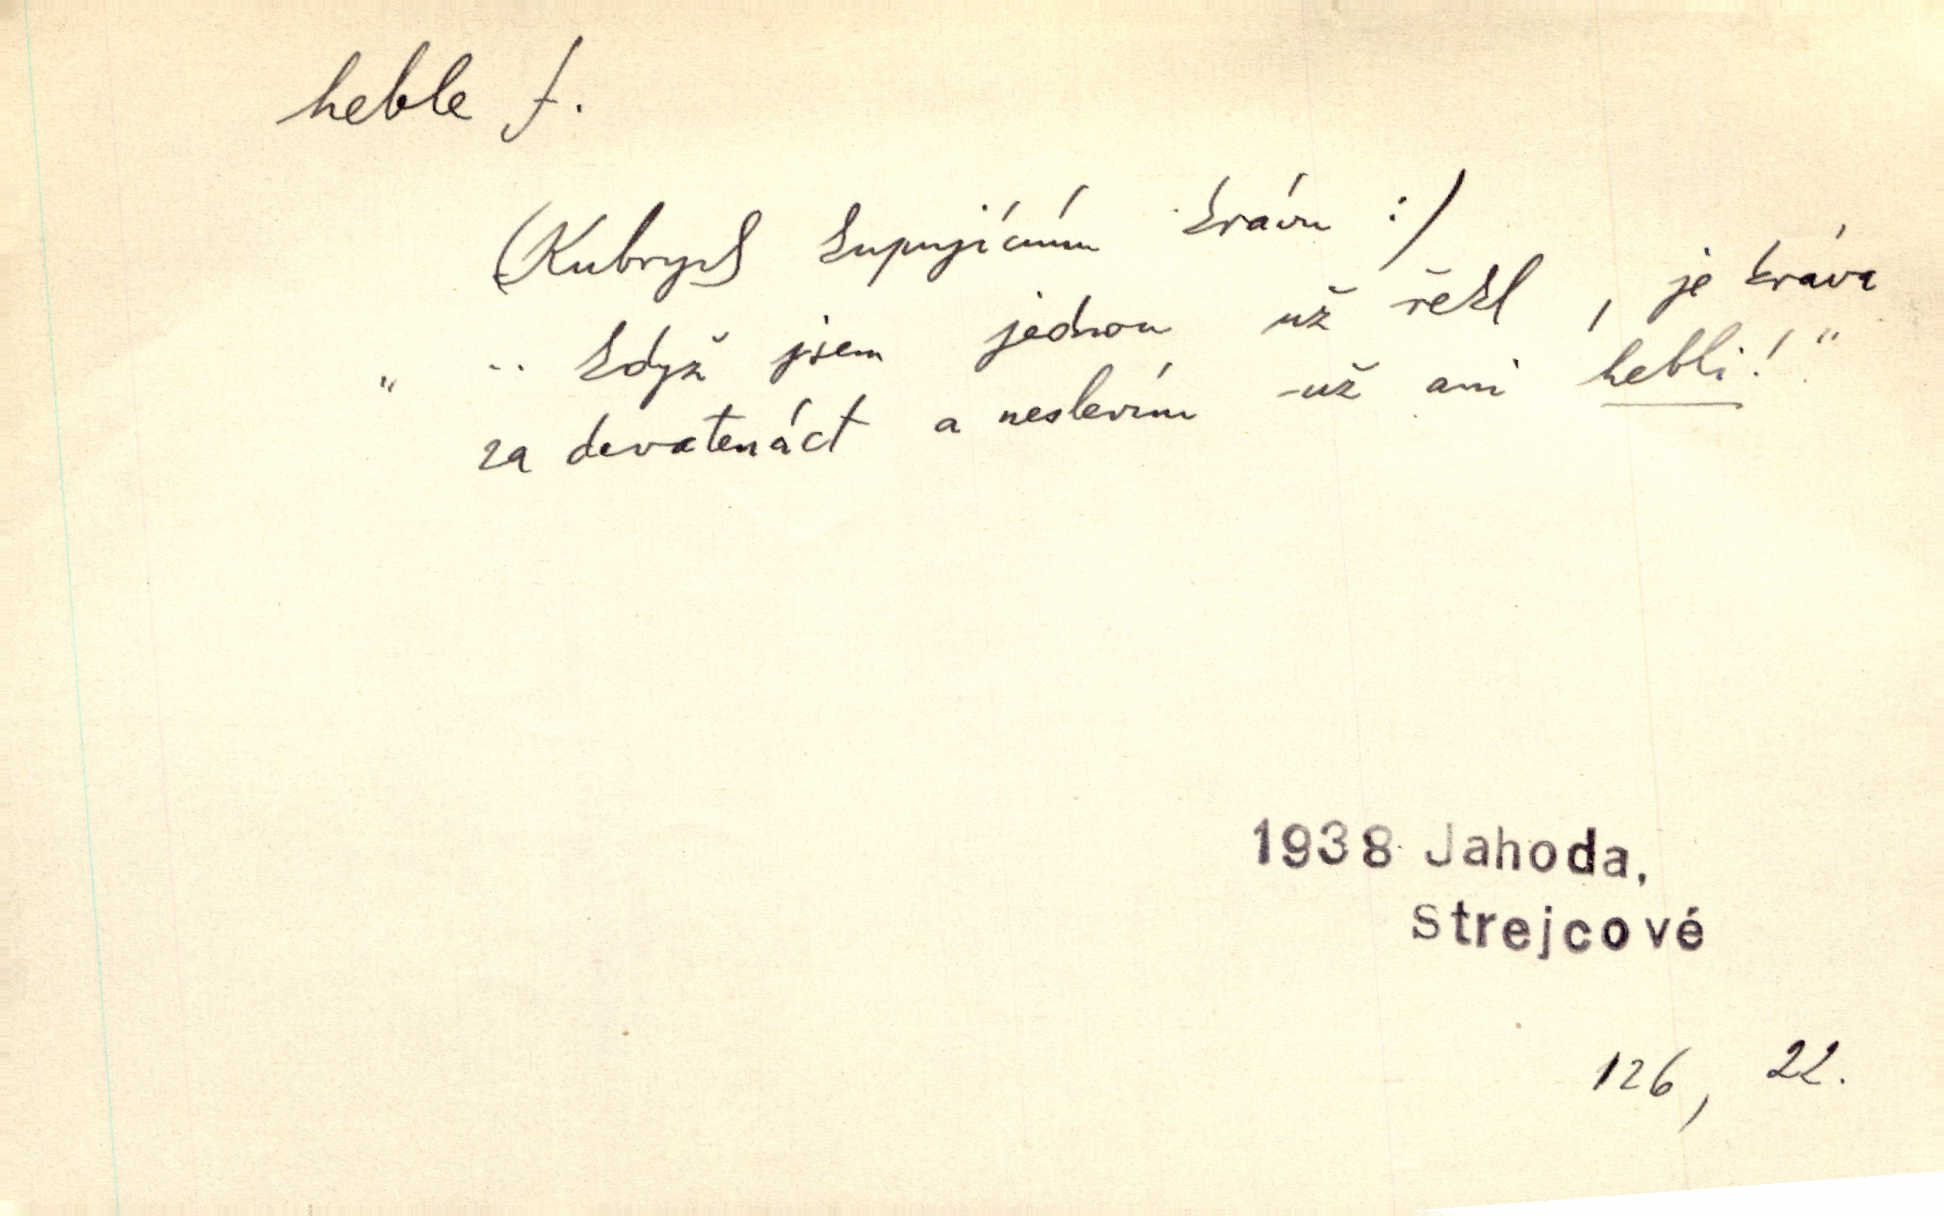 heble f.
(Kubrych kupujícímu krávu :)
" .. když jsem jednou už řekl, je kráva
za devatenáct a neslevím už ani hebli! "
1938 Jahoda,
Strejcové
126, 22.